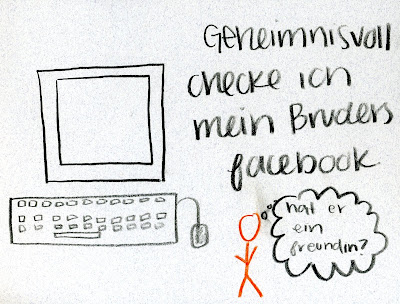 Geheimnisvoll
checke ich
mein Bruders
facebook
hat er
ein
freundin?